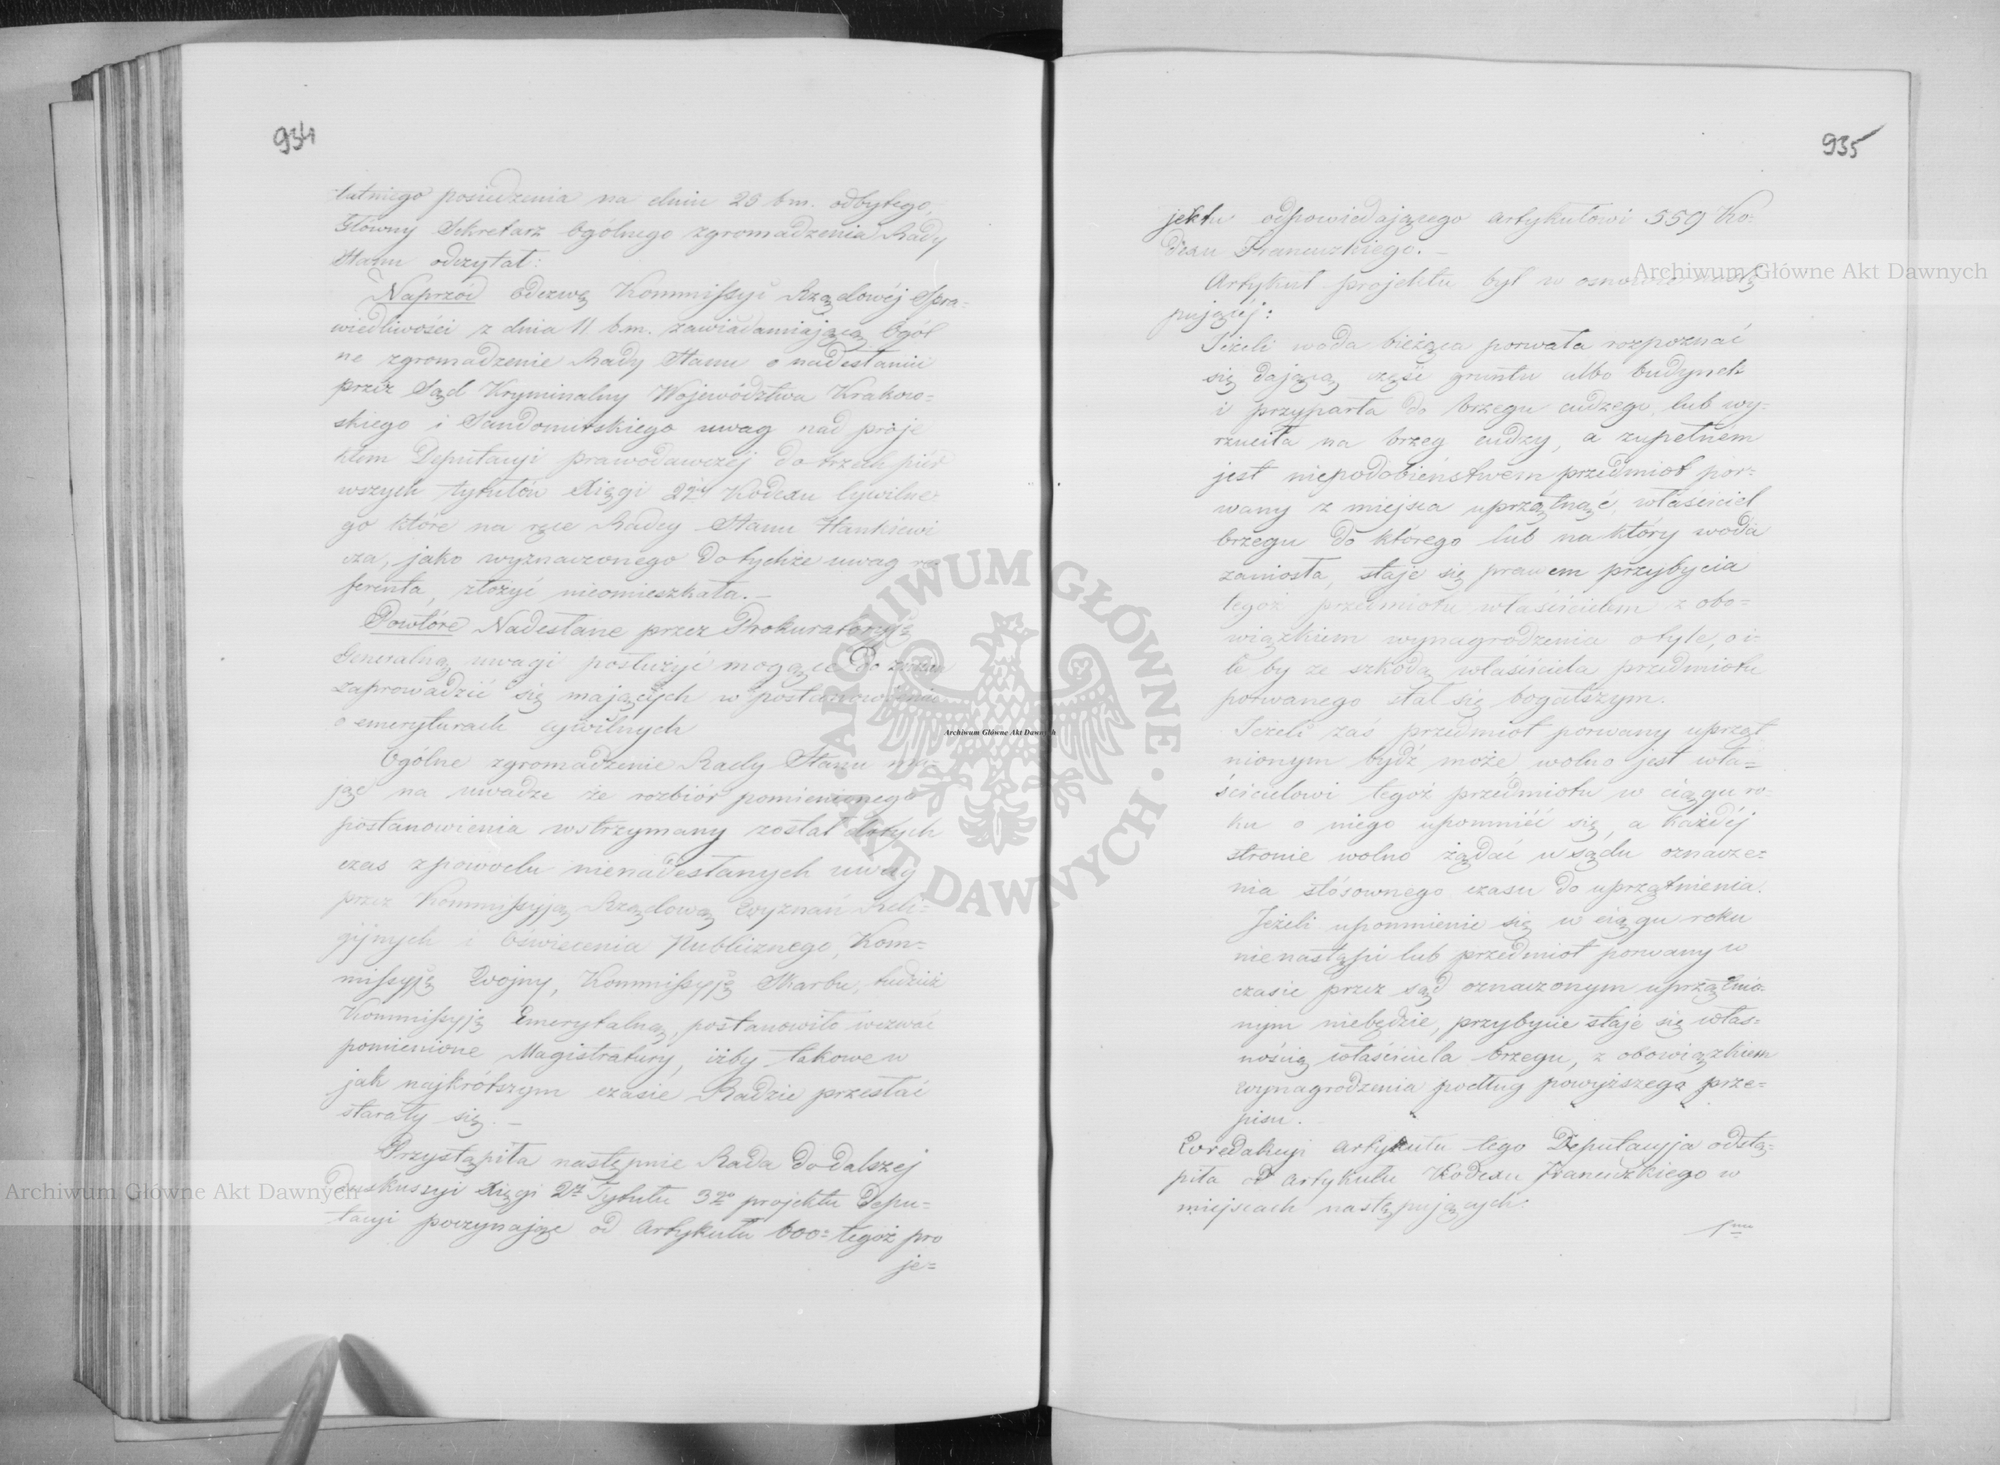 934
tatniego posiedzenia na dniu 23 b m. odbytego,
Główny Sekretarz Ogólnego zgromadzenia Rady
Stanu odczytał:
Naprzód Odezwę Kommissyi Rządowéj Spra-
wiedliwości z dnia 11 b.m. zawiadamiającą Ogól
ne zgromadzenie Rady Stanu o nadesłaniu
przez Sąd Kryminalny Województwa Krakow=
skiego i Sandomirskiego uwag nad proje
ktem Deputacyi prawodawczéj do trzech pier
wszych tytułów Xięgi 2giéj Kodexu Cywilne
go które na ręce Radcy Stanu Hankiewi
cza, jako wyznaczonego do tychże uwag re
ferenta, złożyć nieomieszkała. –
Powtóre Nadesłane przez Prokuratoryą
Generalną uwagi posłużyć mogące do zmian
zaprowadzić się mających w postanowieniu
o emeryturach cywilnych
Ogólne zgromadzenie Rady Stanu ma-
jąc na uwadze że rozbiór pomienionego
postanowienia wstrzymany został dotych
czas z powodu nienadesłanych uwag
przez Kommissyją Rządową Wyznań Reli-
gijnych i Oświecenia Publicznego, Kom=
missyją Wojny, Kommissyją Skarbu, tudzież
Kommissyją Emerytalną, postanowiło wezwać
pomienione Magistratury, iżby takowe w
jak najkrótszym czasie Radzie przesłać
starały się. –
Przystąpiła następnie Rada do dalszej
Dyskussyi Xięgi 2éj Tytułu 3go projektu Depu=
tacyi poczynając od Artykułu 600= tegoż pro
je=
935
jektu odpowiedającego artykułowi 559 Ko-
dexu Francuzkiego. –
Artykuł projektu był w osnowie nastę
pującéj:
Jeżeli woda bieżąca porwała rozpoznać
się dającą część gruntu albo budynek
i przyparła do brzegu cudzego lub wy-
rzuciła na brzeg cudzy, a zupełném
jest niepodobieństwem przedmiot por-
wany z miejsca uprzątnąć, właściciel
brzegu do którego lub na który woda
zaniosła, staje się prawem przybycia
tegoż przedmiotu właścicielem z obo=
wiązkiem wynagrodzenia o tyle, o i-
le by ze szkodą właściciela przedmiotu
porwanego stał się bogatszym.
Jeżeli zaś przedmiot porwany uprząt
nionym bydź może, wolno jest wła=
ścicielowi tegoż przedmiotu w ciągu ro-
ku o niego upomnieć się, a każdéj
stronie wolno żądać u sądu oznacze-
nia stósownego czasu do uprzątnienia.
Jeżeli upomnienie się w ciągu roku
nienastąpi lub przedmiot porwany w
czasie przez sąd oznaczonym uprzątnio-
nym niebędzie, przybycie staje się włas=
nością właściciela brzegu, z obowiązkiem
wynagrodzenia podług powyższego prze-
pisu. –
W redakcyi artykułu tego Deputacyja odstą-
piła od artykułu Kodexu Francuzkiego w
miejscach następujących:
1mo
Archiwum Główne Akt Dawnych
Archiwum Główne Akt Dawnych
Archiwum Główne Akt Dawnych
ARCHIWUM GŁÓWNE AKT DAWNYCH